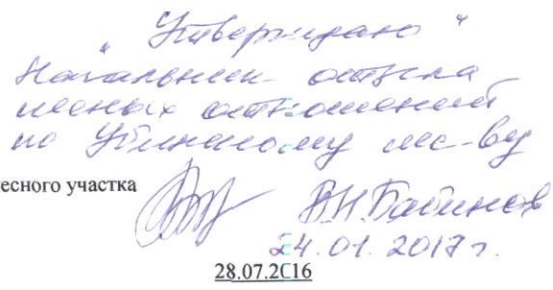 "Утверждаю"
Начальник отдела
лесных отношений
по Убинскому лес-ву
есного участка
В.Н.
24.01.2017 г.
28.07.2016